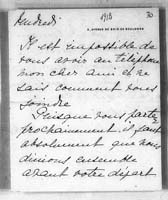 Vendredi
1918
30
5, AVENUE DU BOIS DE BOULOGNE
Il est impossible de
vous avoir au téléphone
mon cher ami et ne
sais comment vous
joindre
Puisque vous partez
prochainement il faut
absolument que nous
dinions ensemble
avant votre départ